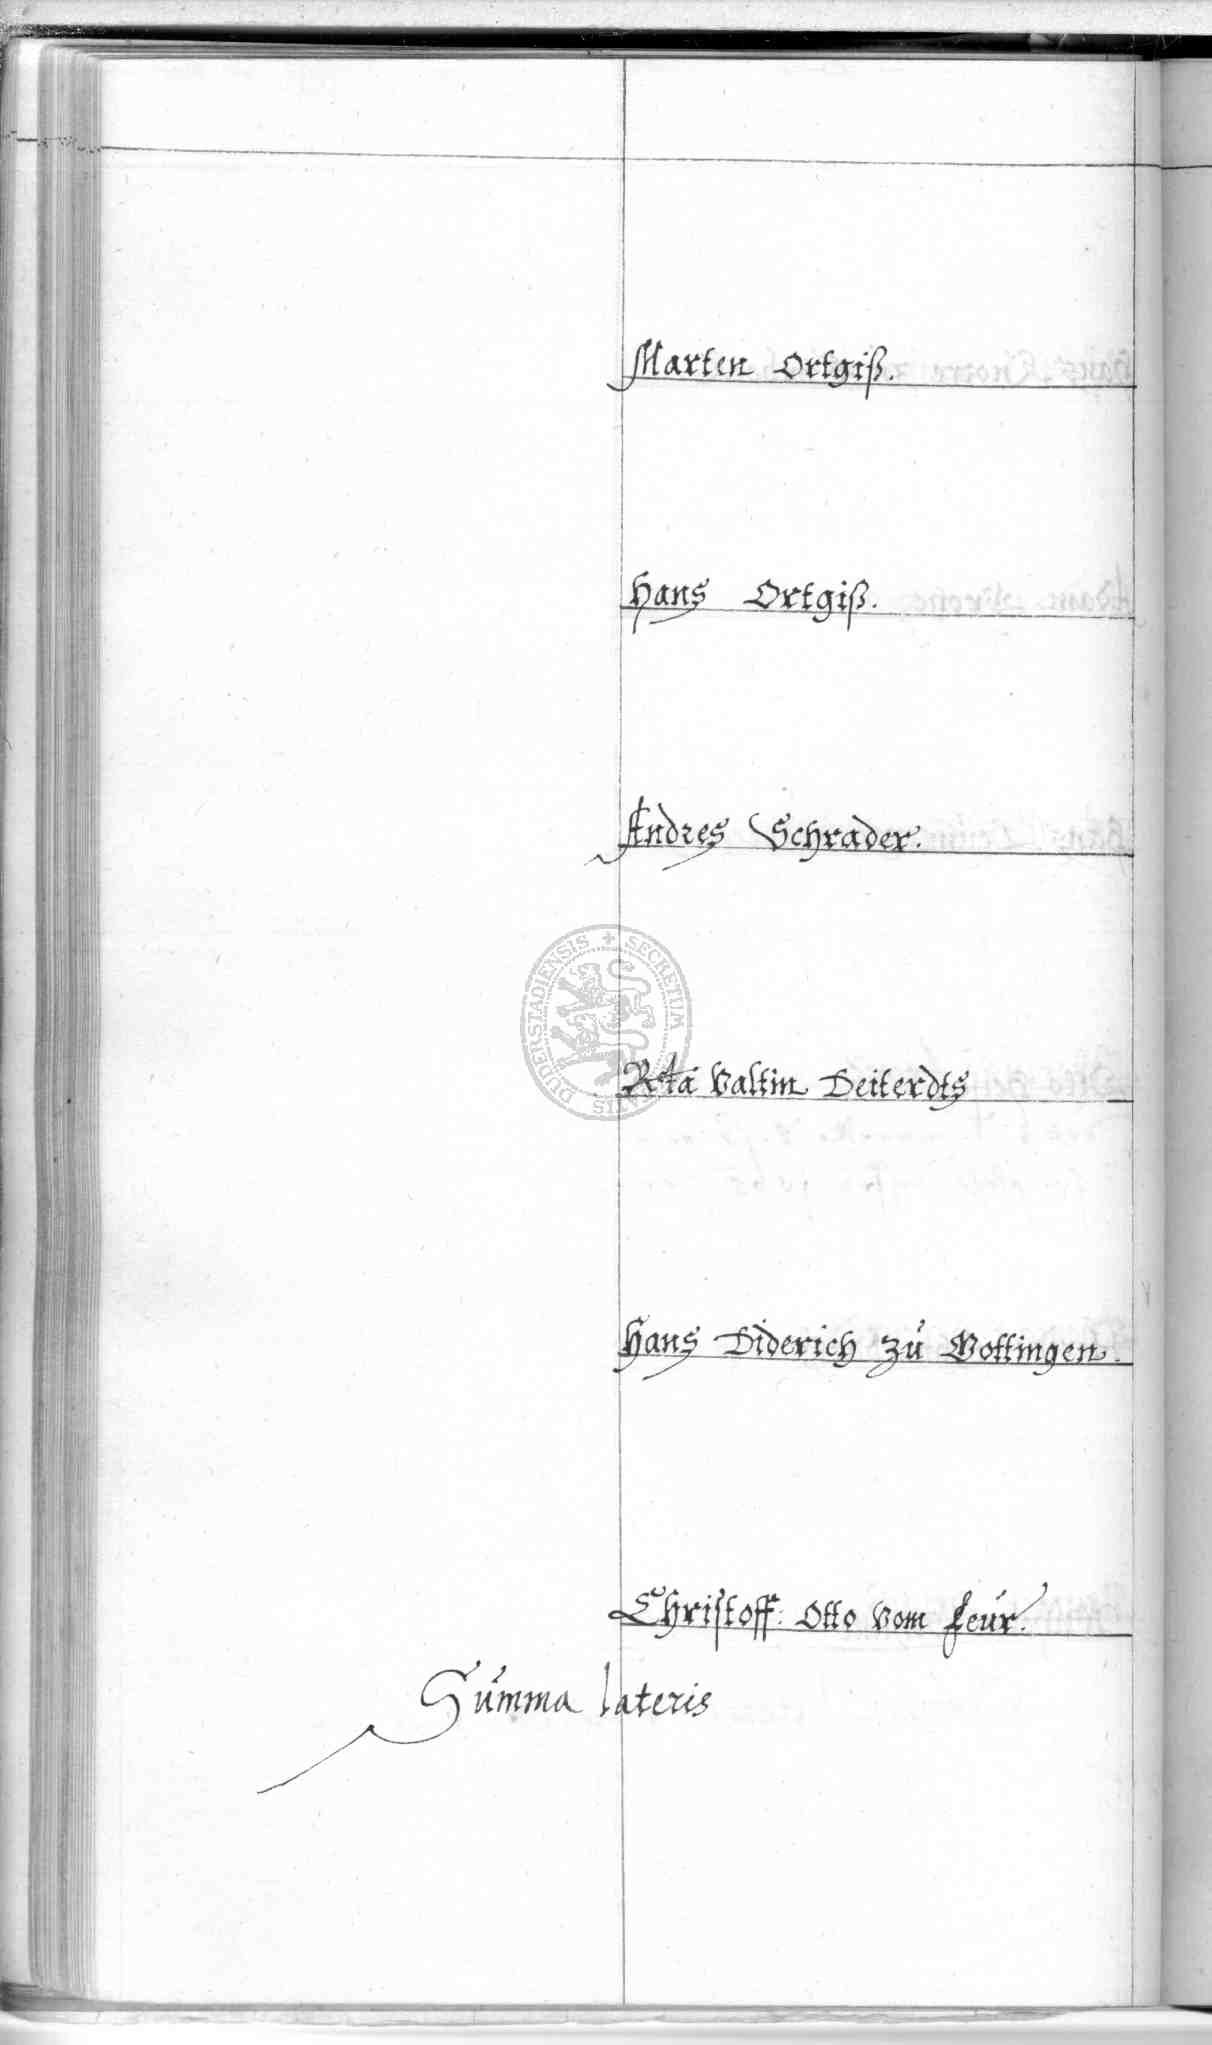 Marten Ortgiß.
Hans Ortgiß.
Andres Schrader.
DUDERSTADIENSIS + SECRETUM
Rta Valtin Deiterdts
Hans Diderich zu Bottingen.
Christoff: Otto vom feur.
Summa lateris